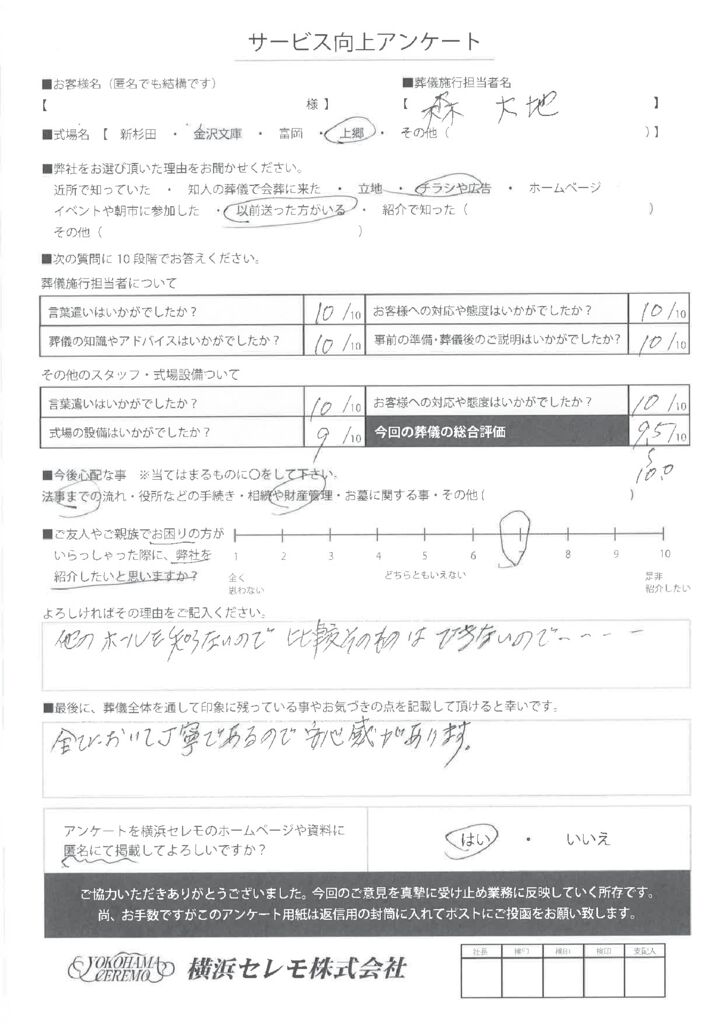 サービス向上アンケート
■お客様名（匿名でも結構です）　■葬儀施行担当者名
【　様 】　【 森 大地 】
■式場名【 新杉田 ・ 金沢文庫 ・ 富岡 ・ 上郷 ・ その他（　）】
■弊社をお選び頂いた理由をお聞かせください。
近所で知っていた ・ 知人の葬儀で会葬に来た ・ 立地 ・ チラシや広告 ・ ホームページ
イベントや朝市に参加した ・ 以前送った方がいる ・ 紹介で知った（　）
その他（　）
■次の質問に 10 段階でお答えください。
葬儀施行担当者について
言葉遣いはいかがでしたか？ 10/10 お客様への対応や態度はいかがでしたか？ 10/10
葬儀の知識やアドバイスはいかがでしたか？ 10/10 事前の準備・葬儀後のご説明はいかがでしたか？ 10/10
その他のスタッフ・式場設備ついて
言葉遣いはいかがでしたか？ 10/10 お客様への対応や態度はいかがでしたか？ 10/10
式場の設備はいかがでしたか？ 9/10 今回の葬儀の総合評価 9.5/10
10.0
■今後心配な事　※当てはまるものに〇をして下さい。
法事までの流れ・役所などの手続き・相続や財産管理・お墓に関する事・その他（　）
■ご友人やご親族でお困りの方が
いらっしゃった際に、弊社を
紹介したいと思いますか？
1 2 3 4 5 6 7 8 9 10
全く思わない　どちらともいえない　是非紹介したい
よろしければその理由をご記入ください。
他のホールを知らないので 比較そのものは できないので----
■最後に、葬儀全体を通して印象に残っている事やお気づきの点を記載して頂けると幸いです。
全てにおいて丁寧であるので 安心感があります。
アンケートを横浜セレモのホームページや資料に
匿名にて掲載してよろしいですか？
はい ・ いいえ
ご協力いただきありがとうございました。今回のご意見を真摯に受け止め業務に反映していく所存です。
尚、お手数ですがこのアンケート用紙は返信用の封筒に入れてポストにご投函をお願い致します。
YOKOHAMA CEREMO 横浜セレモ株式会社
社長 検印 検印 検印 支配人